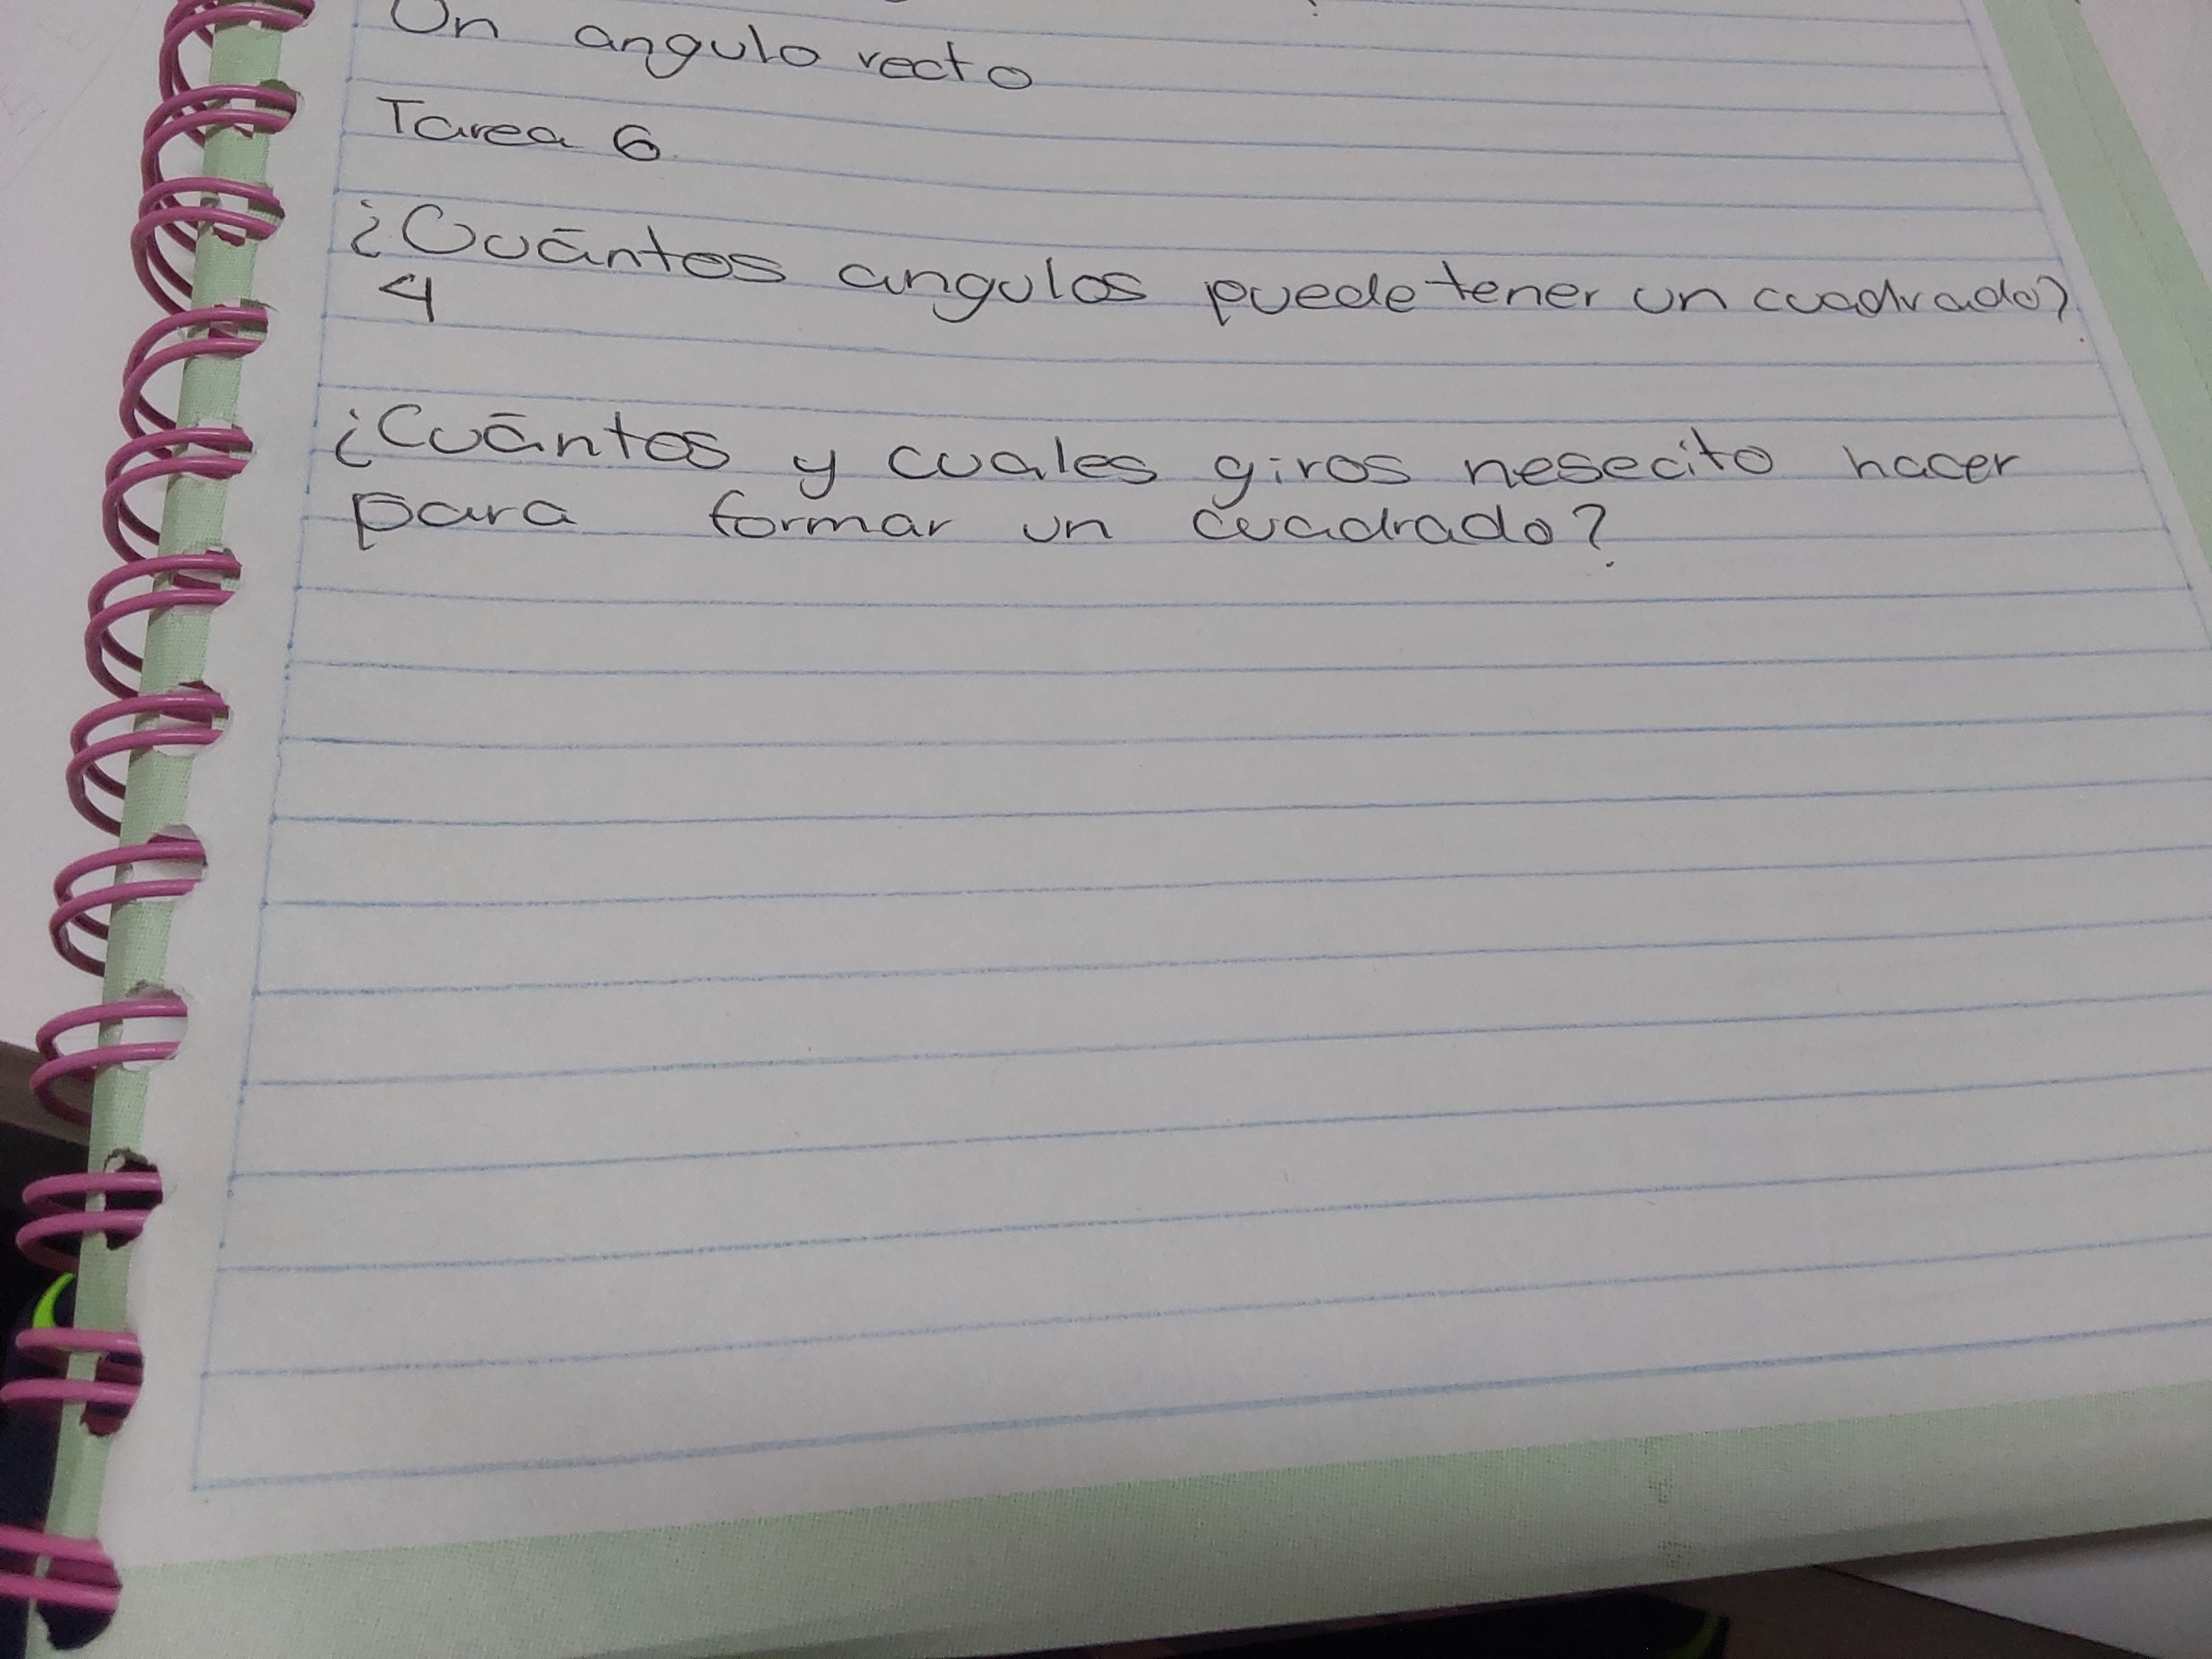 Un angulo recto
Tarea 6
¿Cuántos angulos puede tener un cuadrado?
4
¿Cuántos y cuales giros nesecito hacer
para formar un cuadrado?